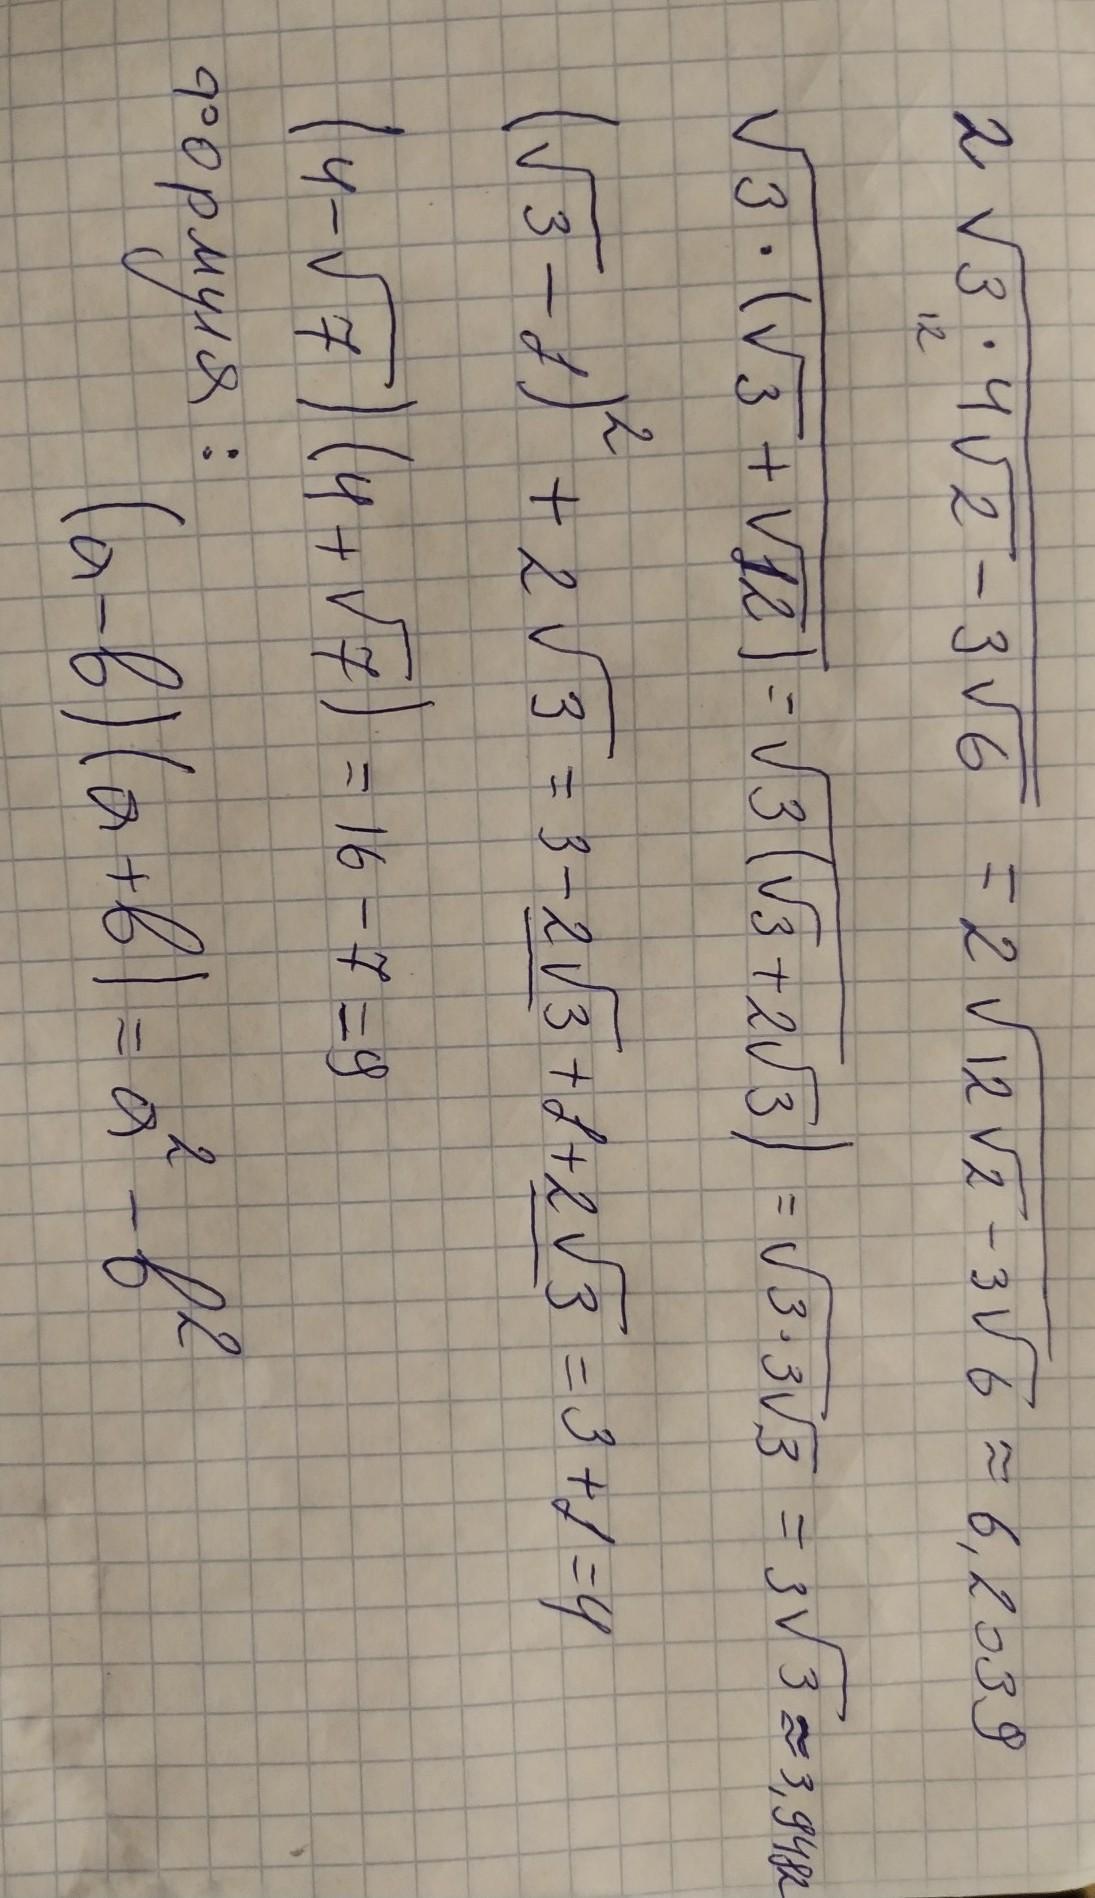 2√(3 · 4√2 − 3√6) = 2√(12√2 − 3√6) ≈ 6,2039
12
√(3 · (√3 + √12)) = √(3(√3 + 2√3)) = √(3 · 3√3) = 3√3 ≈ 3,948
(√3 − 1)² + 2√3 = 3 − 2√3 + 1 + 2√3 = 3 + 1 = 4
(4 − √7)(4 + √7) = 16 − 7 = 9
формуля :
(а − в)(а + в) = а² − в²